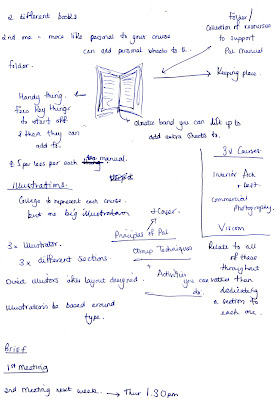 2 different books
2nd me - more like personal to your course
can add personal sheets to it.
folder.
Folder/
Collection of resources
to support
PoL manual
Keeping place.
Handy thing.
Few key things
to start off
& then they can
add to.
elastic band you can clip up to
add extra sheets to.
£5 per less per each manual.
Illustrations.
College to represent each course.
but me big illustration
+ Cover.
Principles of PoL
3x Illustrator.
3x different sections.
Group Techniques
+ Activities
you can
do.
Direct illustrators after layout designed.
Illustrations be based around
type.
3x Courses
Interior Arch
+ Dest.
Commercial
Photography.
Viscom
Relate to all
of these
throughout
rather than
dedicating
a section to
each one.
Brief
1st meeting
2nd meeting next week. → Thur 1.30pm